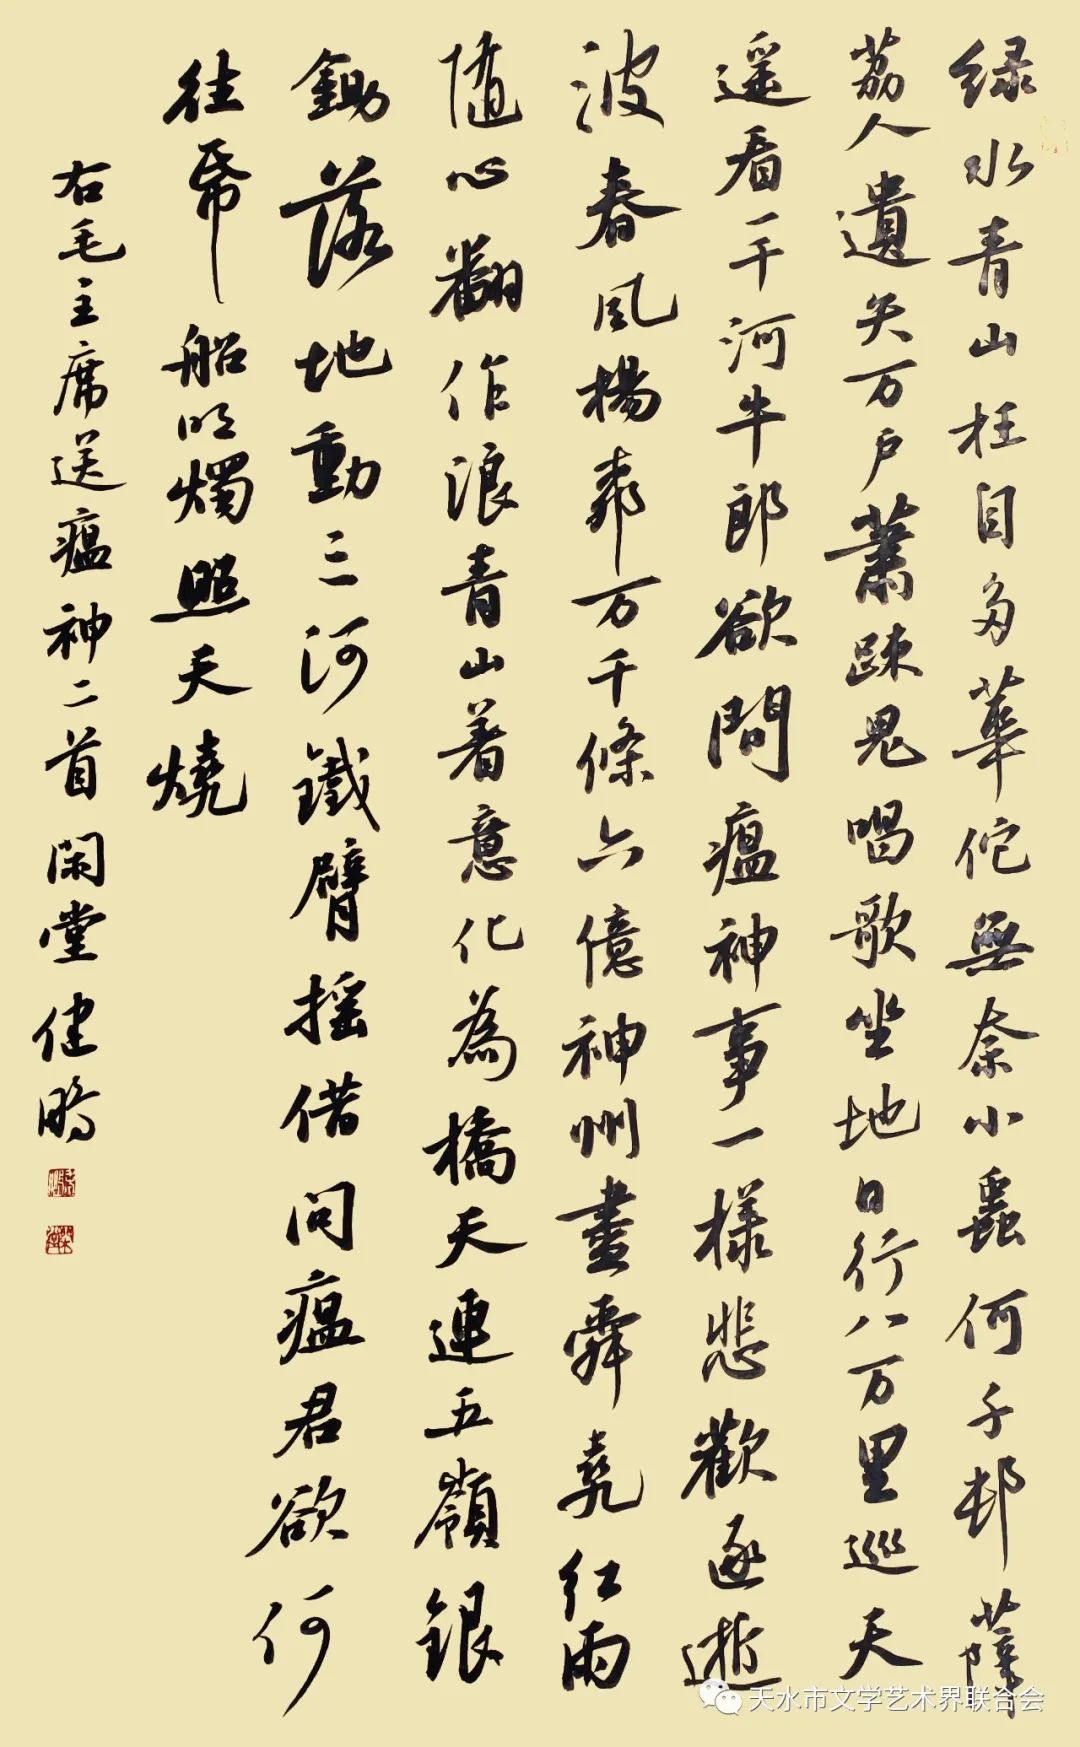 绿水青山枉自多華佗無奈小蟲何千邨薜
荔人遺矢万戶蕭踈鬼唱歌坐地日行八万里巡天
遥看一千河牛郎欲問瘟神事一樣悲歡逐逝
波春風楊柳万千條六億神州盡舜堯红雨
随心翻作浪青山着意化為橋天連五嶺銀
鋤落地動三河鐵臂摇借问瘟君欲何
往帋船明燭照天燒
右毛主席送瘟神二首閑堂健鵬
天水市文学艺术界联合会